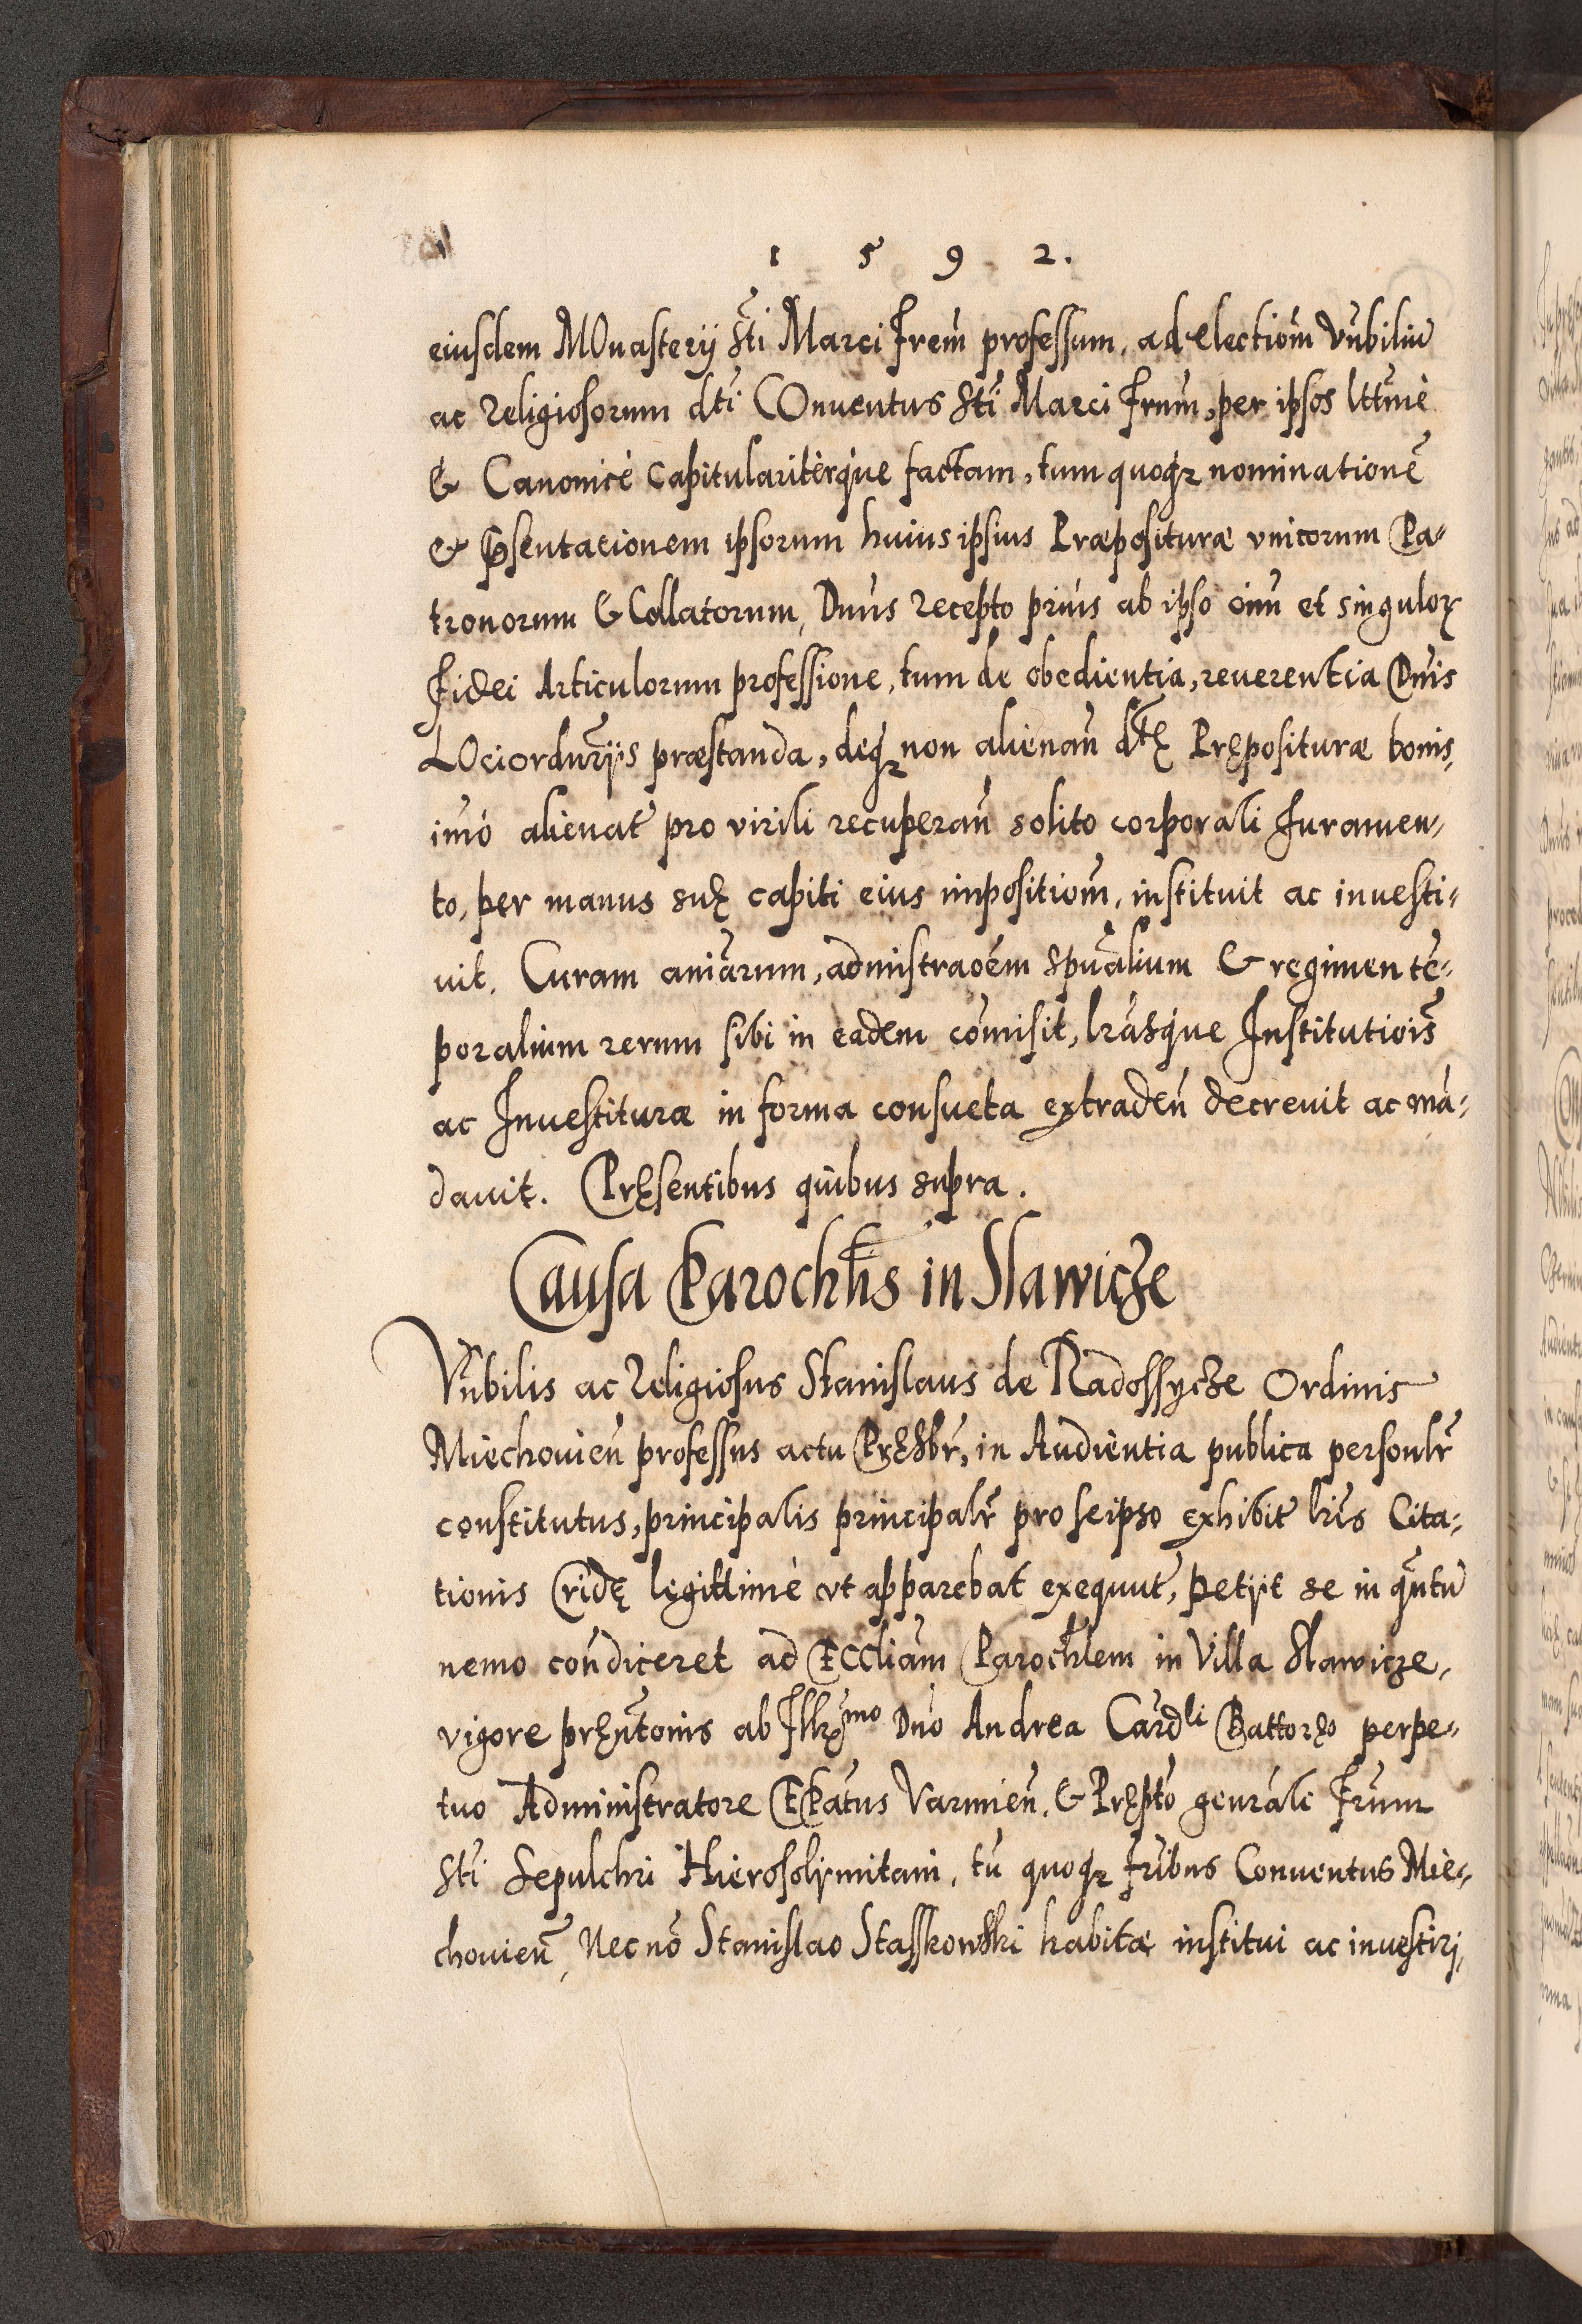 1592.
eiusdem MOnasterij Sti Marci Frem professum, ad electiom Vnbiliu
ac Religiosorum dti COnuentus Sti Marci Frum, per ipsos lttmè
& Canonicè Capitularitèrque factam, tum quoqz nominationē
& p̄sentationem ipsorum huius ipsius Præpositurae vnicorum Pa-
tronorum & Collatorum, Dnus recepto prius ab ipso oiīm et singuloꝝ
Fidei Articulorum professione, tum de obedientia, reuerentia Dnis
LOciordnrijs præstanda, deqz non alienan̄ dtę Pręposituræ bonis,
imò alienat̄ pro virili recuperan̄ solito corporali Iuramen-
to, per manus suę capiti eius impositiom̄, instituit ac inuesti-
uit. Curam aniārum, admistraoēm Spūalium & regimen tē-
poralium rerum sibi in eadem cōmisit, lrāsque Institutiois̄
ac Inuestituræ in forma consueta extraden̄ decreuit ac mā-
dauit. Pręsentibus quibus supra.
Causa Parochlis in Slawicze
Vnbilis ac Religiosus Stanislaus de Radossycze Ordinis
Miechouien̄ professus actu Pręsbr̄, in Audientia publica personlr̄
constitutus, principalis principalr̄ pro seipso exhibit̄ lris Cita-
tionis Cridę legittimè vt apparebat exequut̄, petijt se in qn̄tū
nemo cōndiceret ad ECcliam Parochlem in Villa Slawicze,
vigore pręn̄tonis ab Illrmo Dno Andrea Cardli Battoręo perpe-
tuo Administratore EPatus Varmien̄. & Pręptō genrāli Frum
Sti Sepulchri Hierosolymitani, tū quoqz fribus Conuentus Mie-
chouien̄, Necnō Stanislao Stasskowski habitæ institui ac inuestirj,